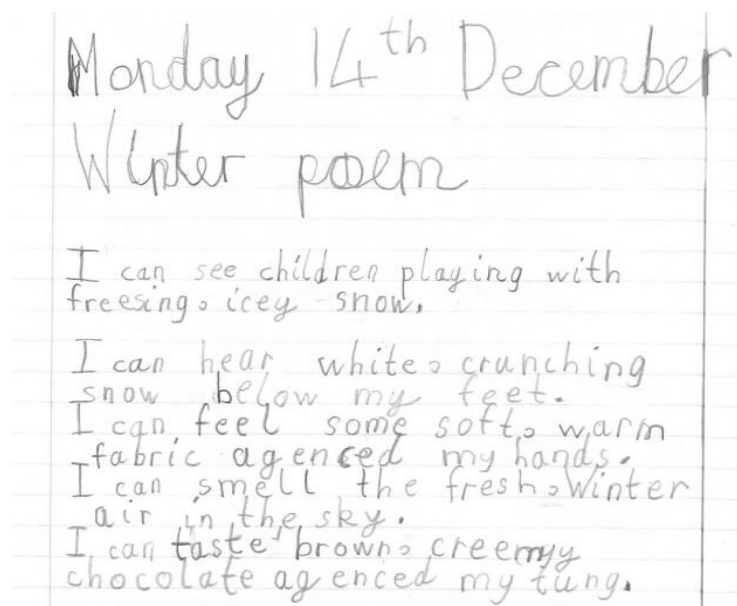 Monday 14th December
Winter poem
I can see children playing with
freesing, icey snow.
I can hear white, crunching
snow below my feet.
I can feel some soft, warm
fabric agenced my hands.
I can smell the fresh, Winter
air in the sky.
I can taste brown, creemyy
chocolate agenced my tung.